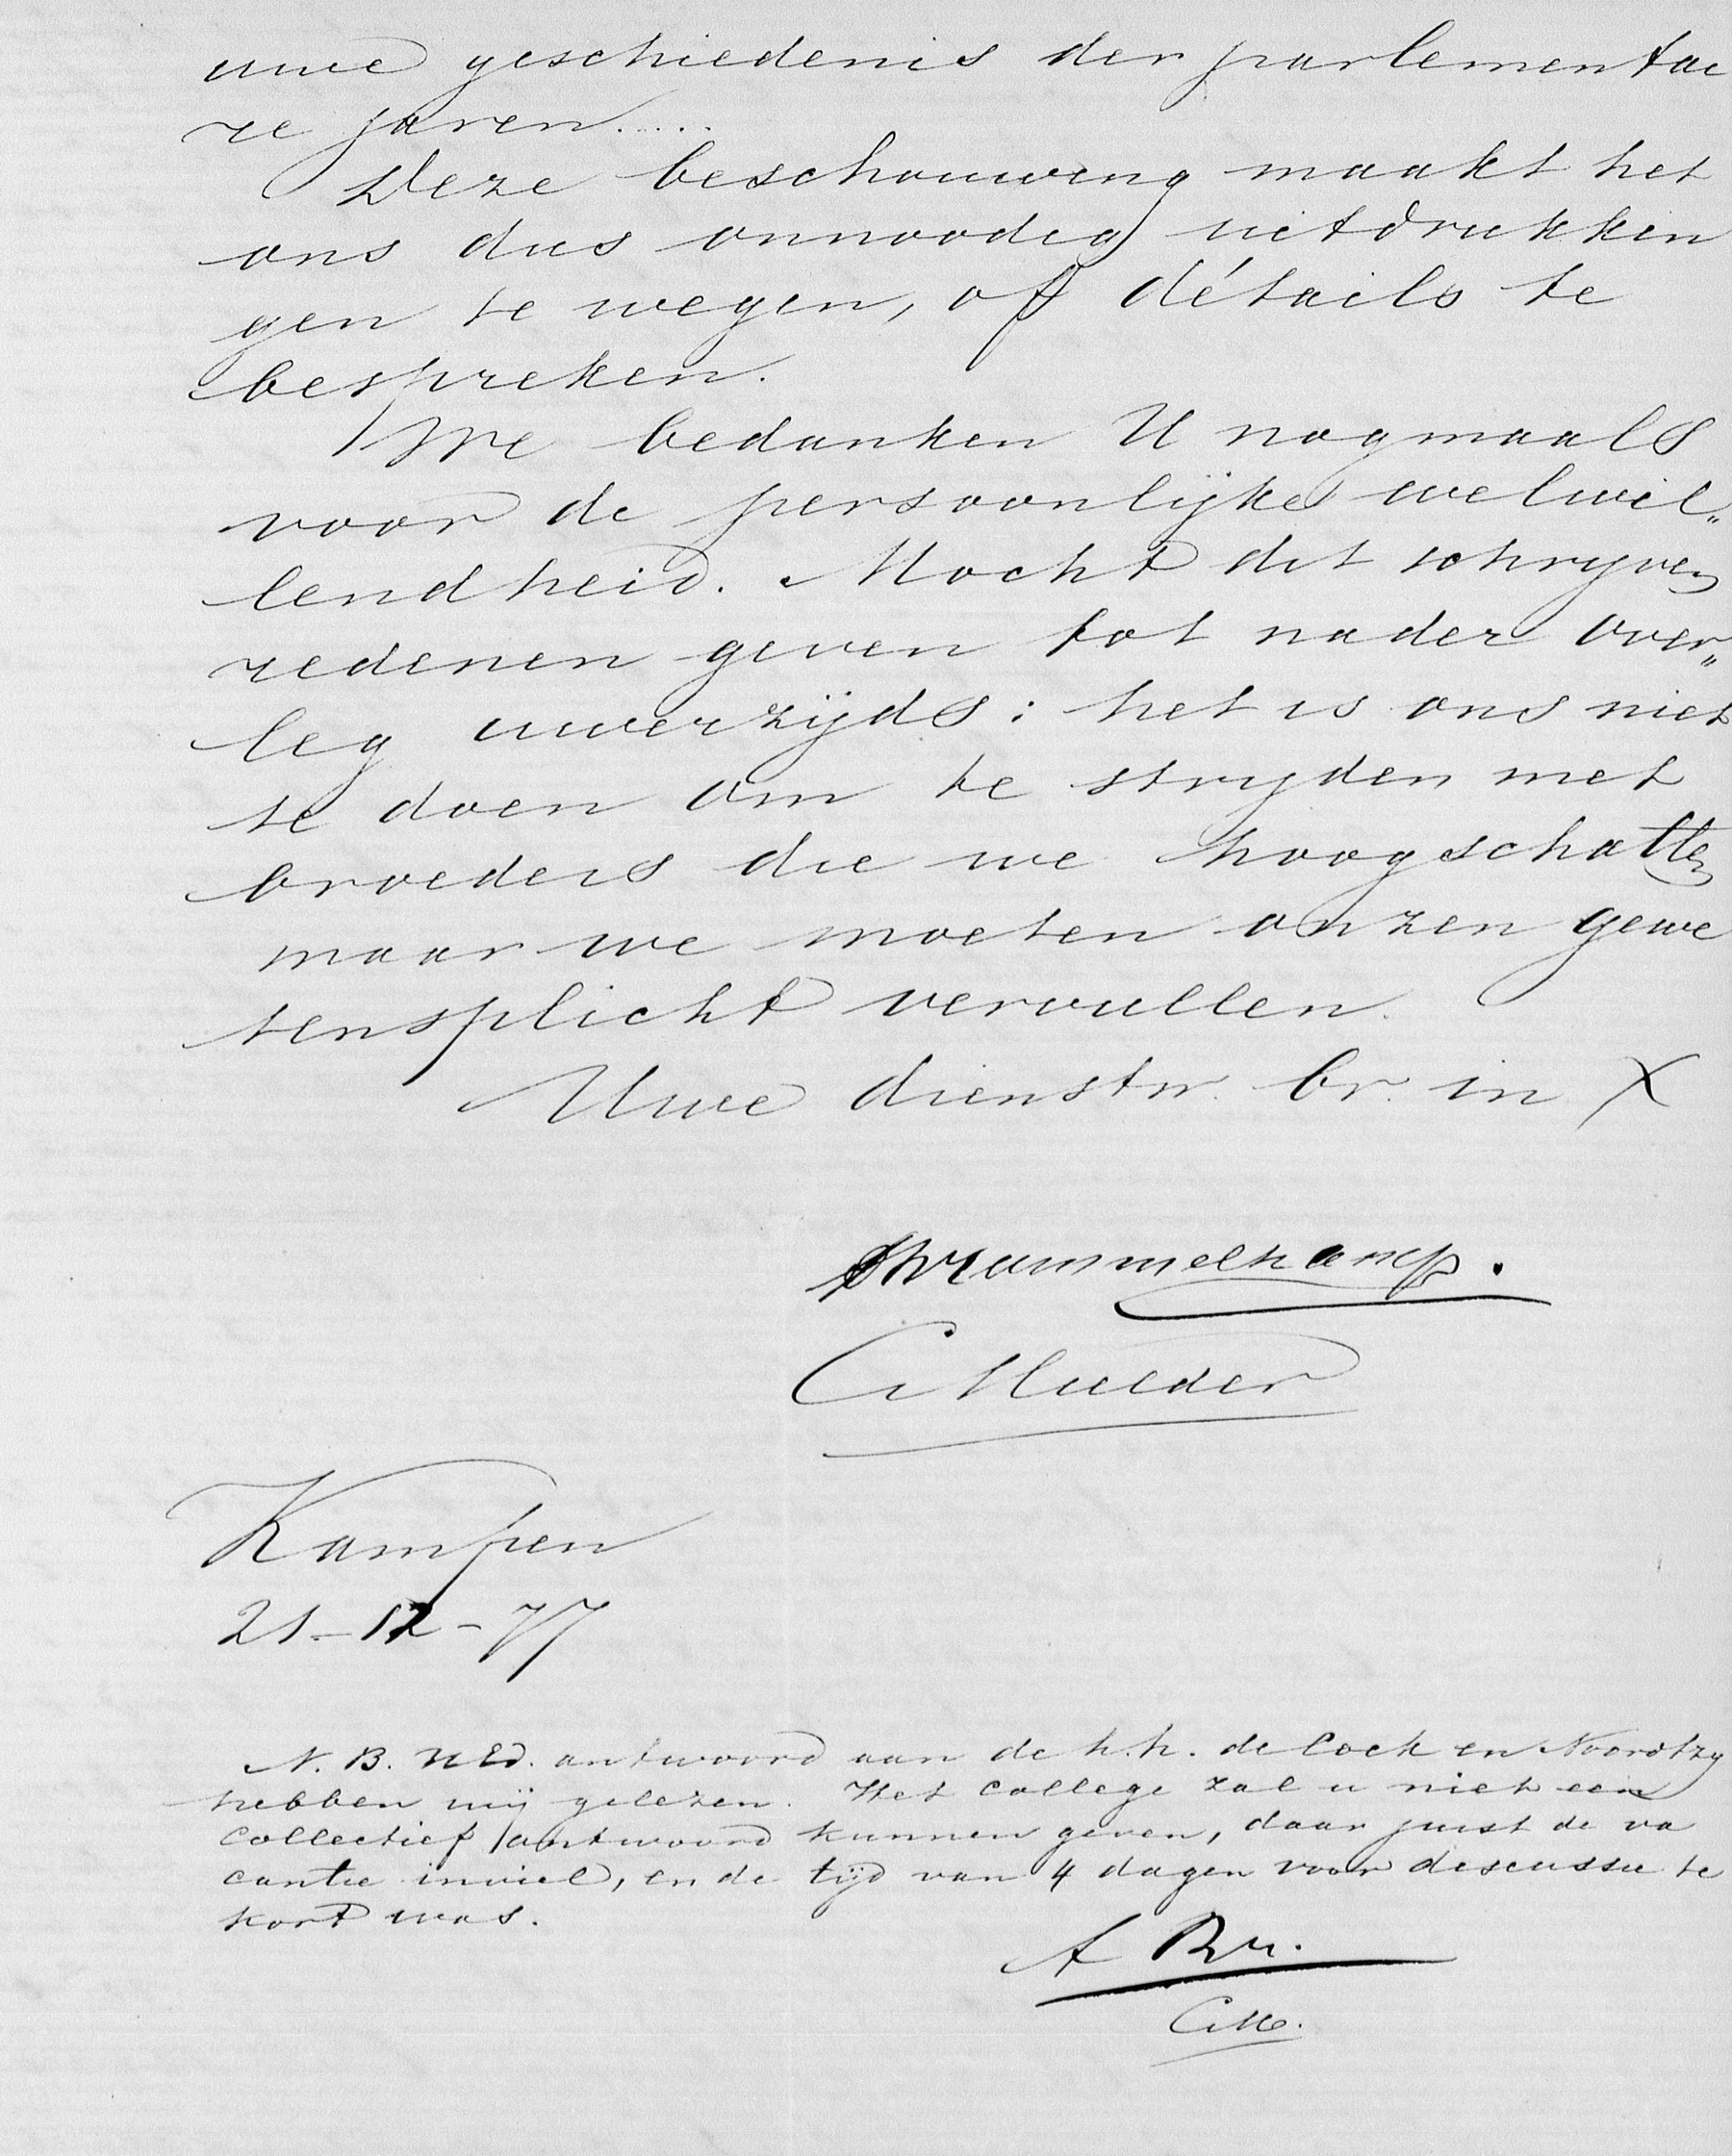 uwe geschiedenis der parlementai
re jaren.....
Deze beschouwing maakt het
ons dus onnoodig uitdrukkin
gen te wegen, of détails te
bespreken.
We bedanken U nogmaals
voor de persoonlijke welwil„
lendheid. Mocht dit schryven
redenen geven tot nader over„
leg uwerzijds: het is ons niet
te doen om te stryden met
broeders die we hoogschatten
maar we moeten onzen gewe
tensplicht vervullen.
Uwe dienstw. br. in X
Brummelkamp.
C Mulder
Kampen
21-12-77
N.B. UEd. antwoord aan de h.h. de Cock en Noordtzy
hebben wij gelezen. Het college zal u niet een
collectief antwoord kunnen geven, daar juist de va
cantie inviel, en de tijd van 4 dagen voor discussie te
kort was.
A Br.
C.M.